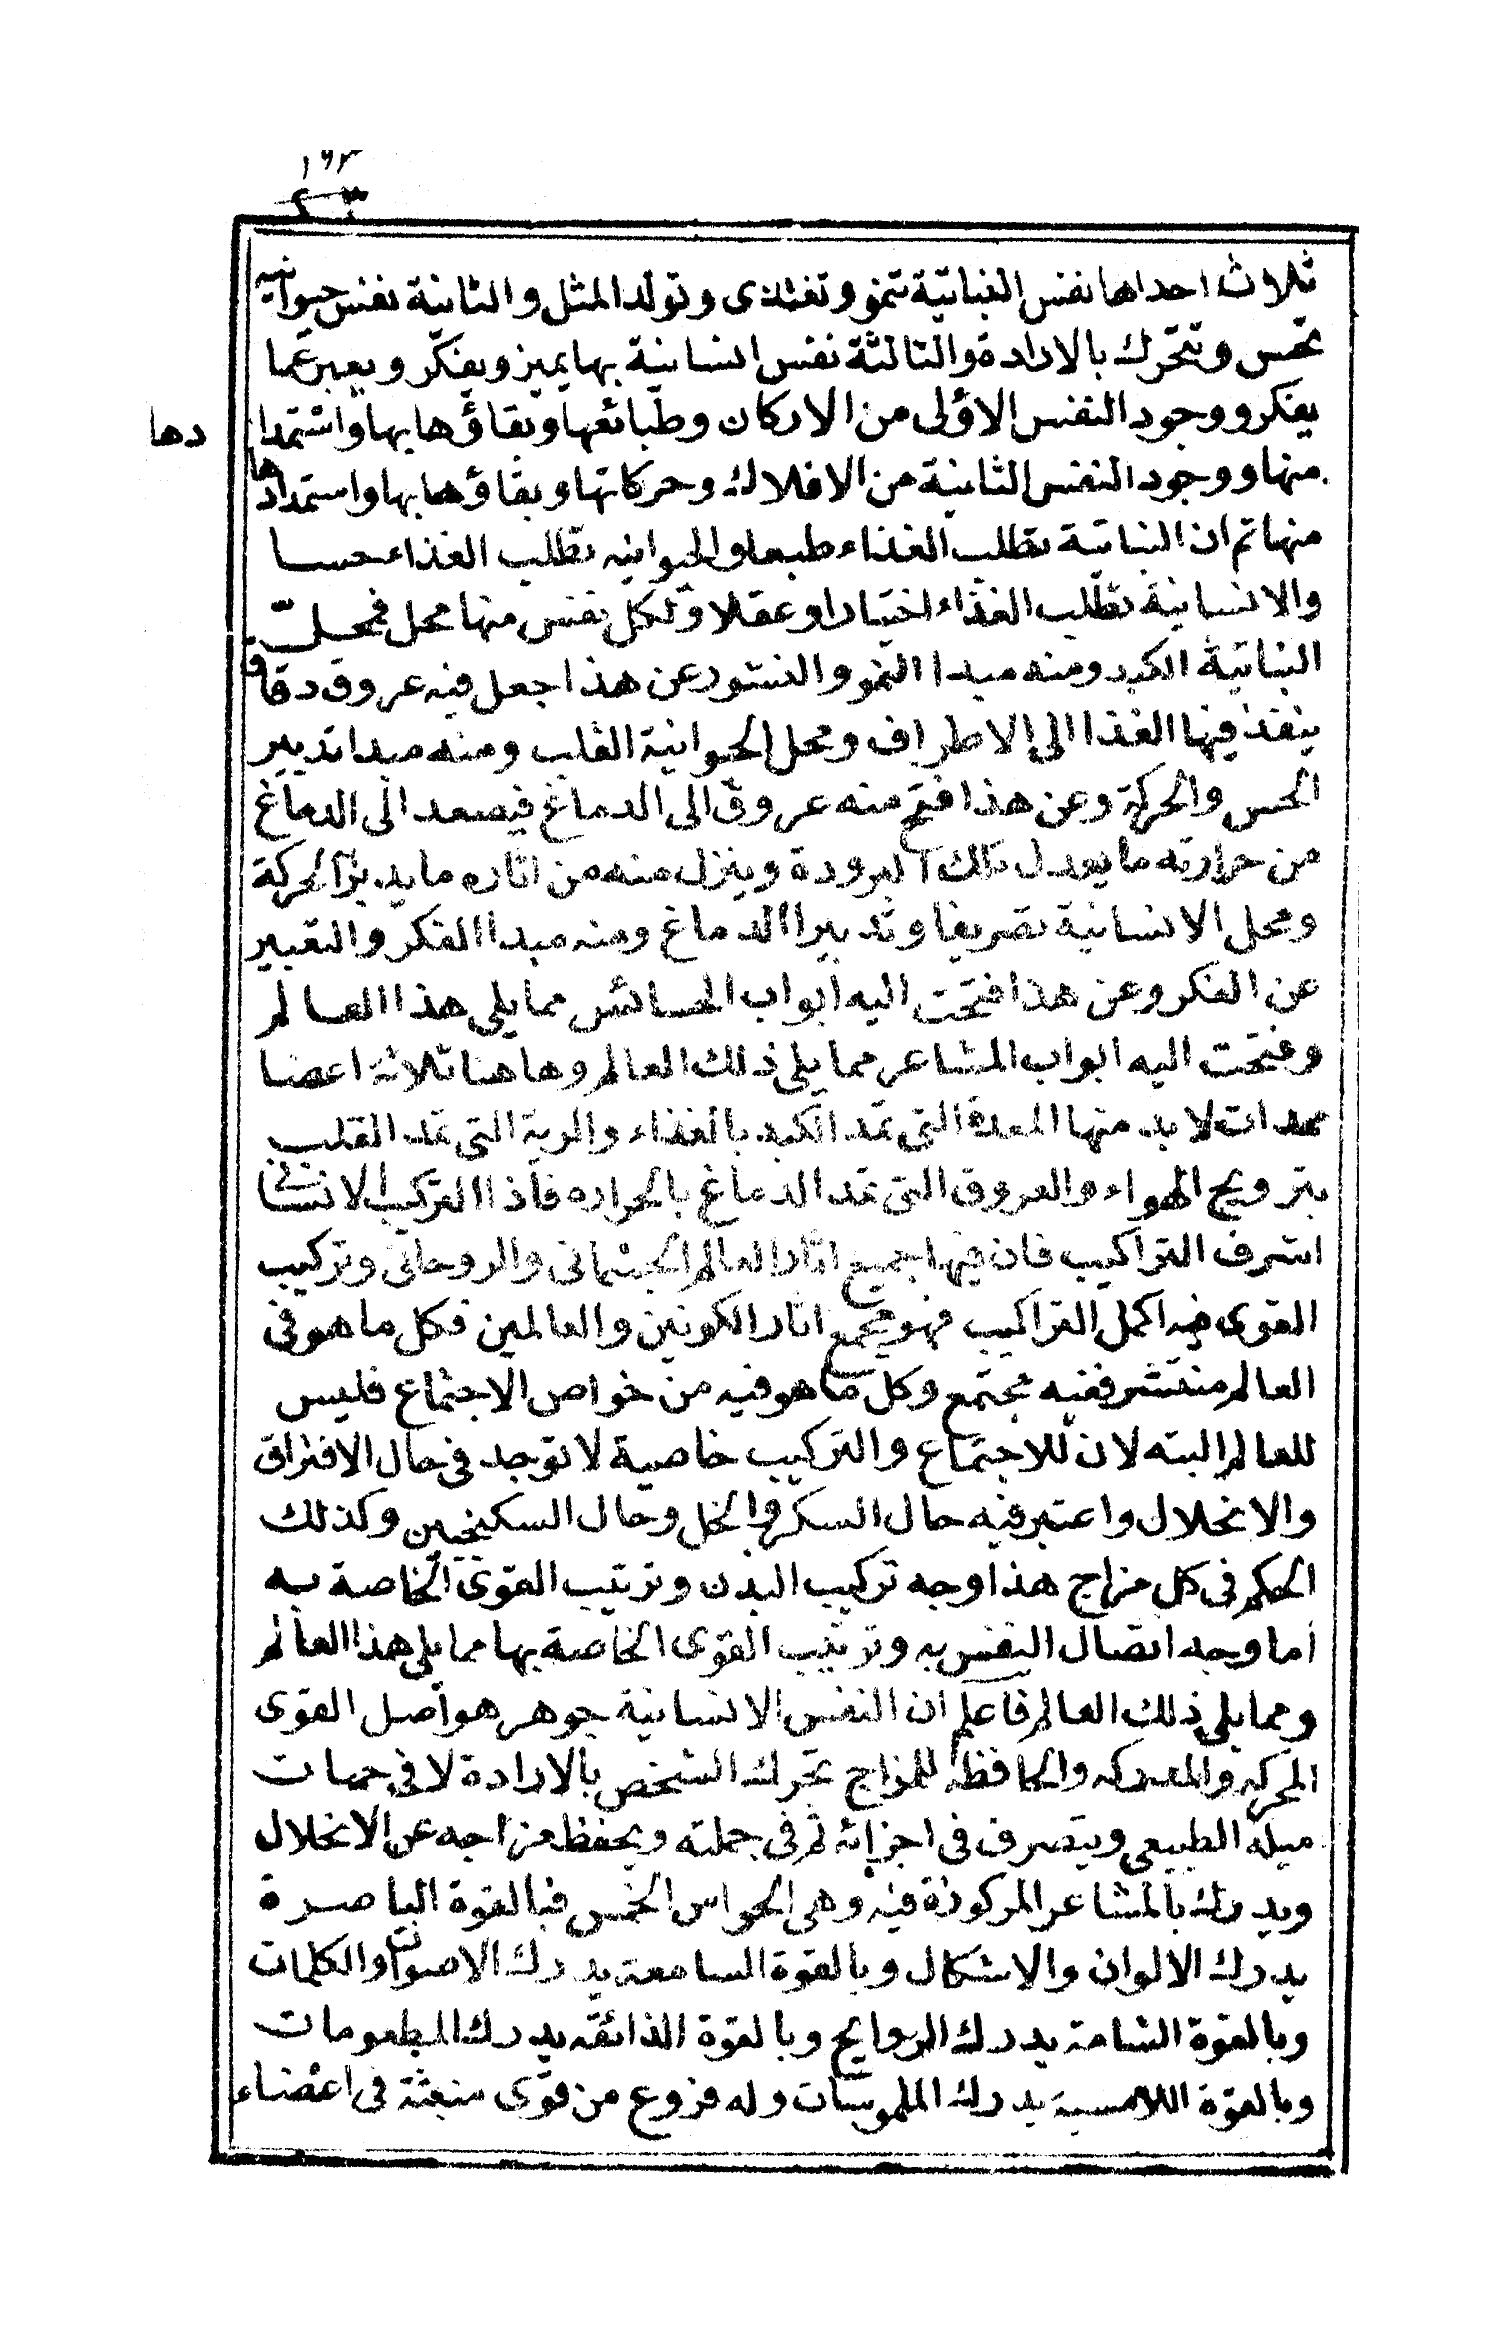 ١٦٣
ثلاث احداها نفس النباتية تنمو وتغتذى وتولد المثل والثانية نفس حيوانية
تحس وتتحرك بالارادة والثالثة نفس انسانية بها يميز ويفكر ويعبر عما
يفكر ووجود النفس الاولى من الاركان وطبائعها وبقاؤها بها واستمدا
دها
منها ووجود النفس الثانية من الافلاك وحركاتها وبقاؤها بها واستمدادها
منها ثم ان النباتية تطلب الغذاء طبعا والحيوانيه تطلب الغذاء حسا
والانسانية تطلب الغذاء اختيارا وعقلا ولكل نفس منها محل فمحل
النباتية الكبد ومنه مبدا النمو والنشور عن هذا جعل فيه عروق دقاق
ينفذ فيها الغذا الى الاطراف ومحل الحيوانية القلب ومنه مبدا تدبير
الحس والحركة وعن هذا فتح منه عروق الى الدماغ فيصعد الى الدماغ
من حرارته ما يعدل تلك البرودة وينزل منه من اثاره ما يدبر الحركة
ومحل الانسانية تصريفا وتدبيرا الدماغ ومنه مبدا الفكر والتعبير
عن الفكر وعن هذا فتحت اليه ابواب الحسائس مما يلى هذا العالم
وفتحت اليه ابواب المشاعر مما يلى ذلك العالم وهاهنا ثلاثة اعضا
ممدات لا بد منها المعدة التى تمد الكبد بالغذاء والرية التى تمد القلب
بترويح الهواء والعروق التى تمد الدماغ بالحراره فاذا التركيب الانسانى
اشرف التراكيب فان فيها جميع اثار العالم الجسمانى والروحانى وتركيب
القوى فيه اكمل التراكيب فهو مجمع اثار الكونين والعالمين فكل ما هو فى
العالم منتشر ففيه مجتمع وكل ما هو فيه من خواص الاجتماع فليس
للعالم البته لان للاجتماع والتركيب خاصية لا توجد فى حال الافتراق
والانحلال واعتبر فيه حال السكر والخل وحال السكنجبين وكذلك
الحكم فى كل مزاج هذا وجه تركيب البدن وترتيب القوى الخاصة به
اما وجه اتصال النفس به وترتيب القوى الخاصة بها مما يلى هذا العالم
ومما يلى ذلك العالم فاعلم ان النفس الانسانية جوهر هو اصل القوى
المحركه والمدركه والحافظه للمزاج تحرك الشخص بالارادة لا فى جهات
ميله الطبيعى ويتصرف فى اجزائه ثم فى جملته ويحفظ مزاجه عن الانحلال
ويدرك بالمشاعر المركوزة فيه وهى الحواس الخمس فبالقوة الباصرة
يدرك الالوان والاشكال وبالقوة السامعة يدرك الاصوات والكلمات
وبالقوة الشامة يدرك الروايح وبالقوة الذائقه يدرك المطعومات
وبالقوة اللامسة يدرك الملموسات وله فروع من قوى منبعثة فى اعضاء